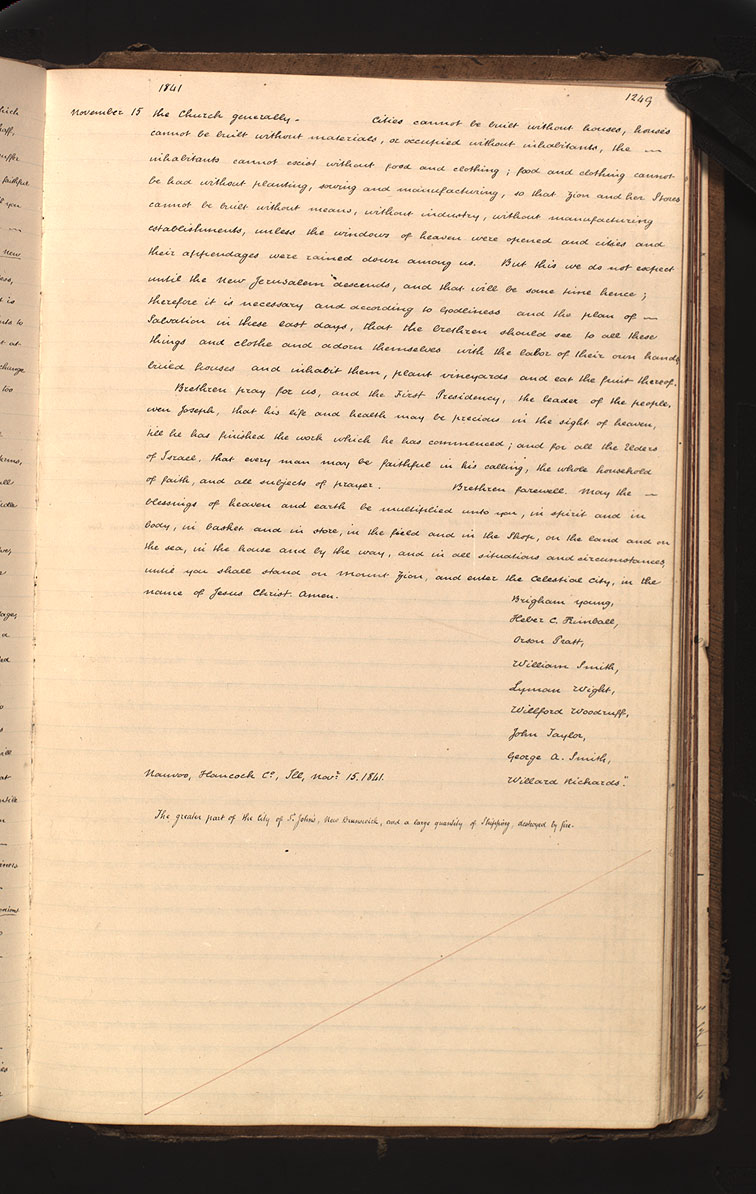 1841
1249
November 15 the Church generally - Cities cannot be built without houses, houses
cannot be built without materials, or occupied without inhabitants, the —
inhabitants cannot exist without food and clothing; food and clothing cannot
be had without planting, sowing and manufacturing, so that Zion and her Stores
cannot be built without means, without industry, without manufacturing
establishments, unless the windows of heaven were opened and cities and
their appendages were rained down among us. But this we do not expect
until the New Jerusalem descends, and that will be some time hence;
therefore it is necessary and according to Godliness and the plan of —
Salvation in these last days, that the brethren should see to all these
things and clothe and adorn themselves with the labor of their own hands,
build houses and inhabit them, plant vineyards and eat the fruit thereof.
Brethren pray for us, and the First Presidency, the leader of the people,
even Joseph, that his life and health may be precious in the sight of heaven,
till he has finished the work which he has commenced; and for all the Elders
of Israel, that every man may be faithful in his calling, the whole household
of faith, and all subjects of prayer. Brethren farewell. May the —
blessings of heaven and earth be multiplied unto you, in spirit and in
body, in basket and in store, in the field and in the Shop, on the land and on
the sea, in the house and by the way, and in all situations and circumstances,
until you shall stand on Mount Zion, and enter the Celestial City, in the
name of Jesus Christ. Amen.
Brigham Young,
Heber C. Kimball,
Orson Pratt,
William Smith,
Lyman Wight,
Willford Woodruff,
John Taylor,
George A. Smith,
Nauvoo, Hancock Co., Ill, Novr. 15. 1841. Willard Richards".
The greater part of the City of St. John's, New Brunswick, and a large quantity of Shipping, destroyed by fire.